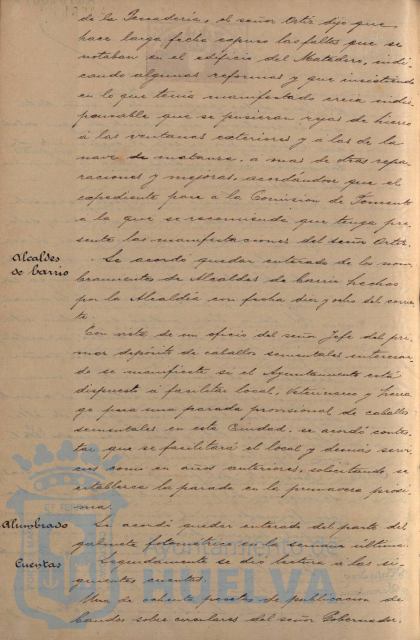 de la Pescadería, el señor Ortiz dijo que
hace larga fecha expuso las faltas que se
notaban en el edificio del Matadero, indi-
cando algunas reformas y que insistiendo
en lo que tenía manifestado creía indis-
pensable que se pusieran rejas de hierro
á las ventanas exteriores y á las de la
nave de matanza, a mas de otras repa-
raciones y mejoras, acordándose que el
expediente pase á la Comision de Fomento
a la que se recomienda que tenga pre-
sente las manifestaciones del señor Ortiz.
Alcaldes de barrio
Se acordó quedar enterado de los nom-
bramientos de Alcaldes de barrio hechos
por la Alcaldía con fecha diez y ocho del corrien-
te.
Con vista de un oficio del señor Jefe del pri-
mer depósito de caballos sementales interesan-
do se manifieste si el Ayuntamiento está
dispuesto á facilitar local, Veterinario y
para una parada provisional de caballos
sementales en esta Ciudad, se acordó contes-
tar que se facilitará el local y demás servi-
cios como en años anteriores, solicitando se
establezca la parada en la primavera próxi-
ma.
Alumbrado
Se acordó quedar enterado del parte del
gabinete fotométrico en la semana última.
Cuentas
Seguidamente se dió lectura á las si-
guientes cuentas.
Una de ochenta pesetas de publicación de
bandos sobre circulares del señor Gobernador.
Ayuntamiento de
HUELVA